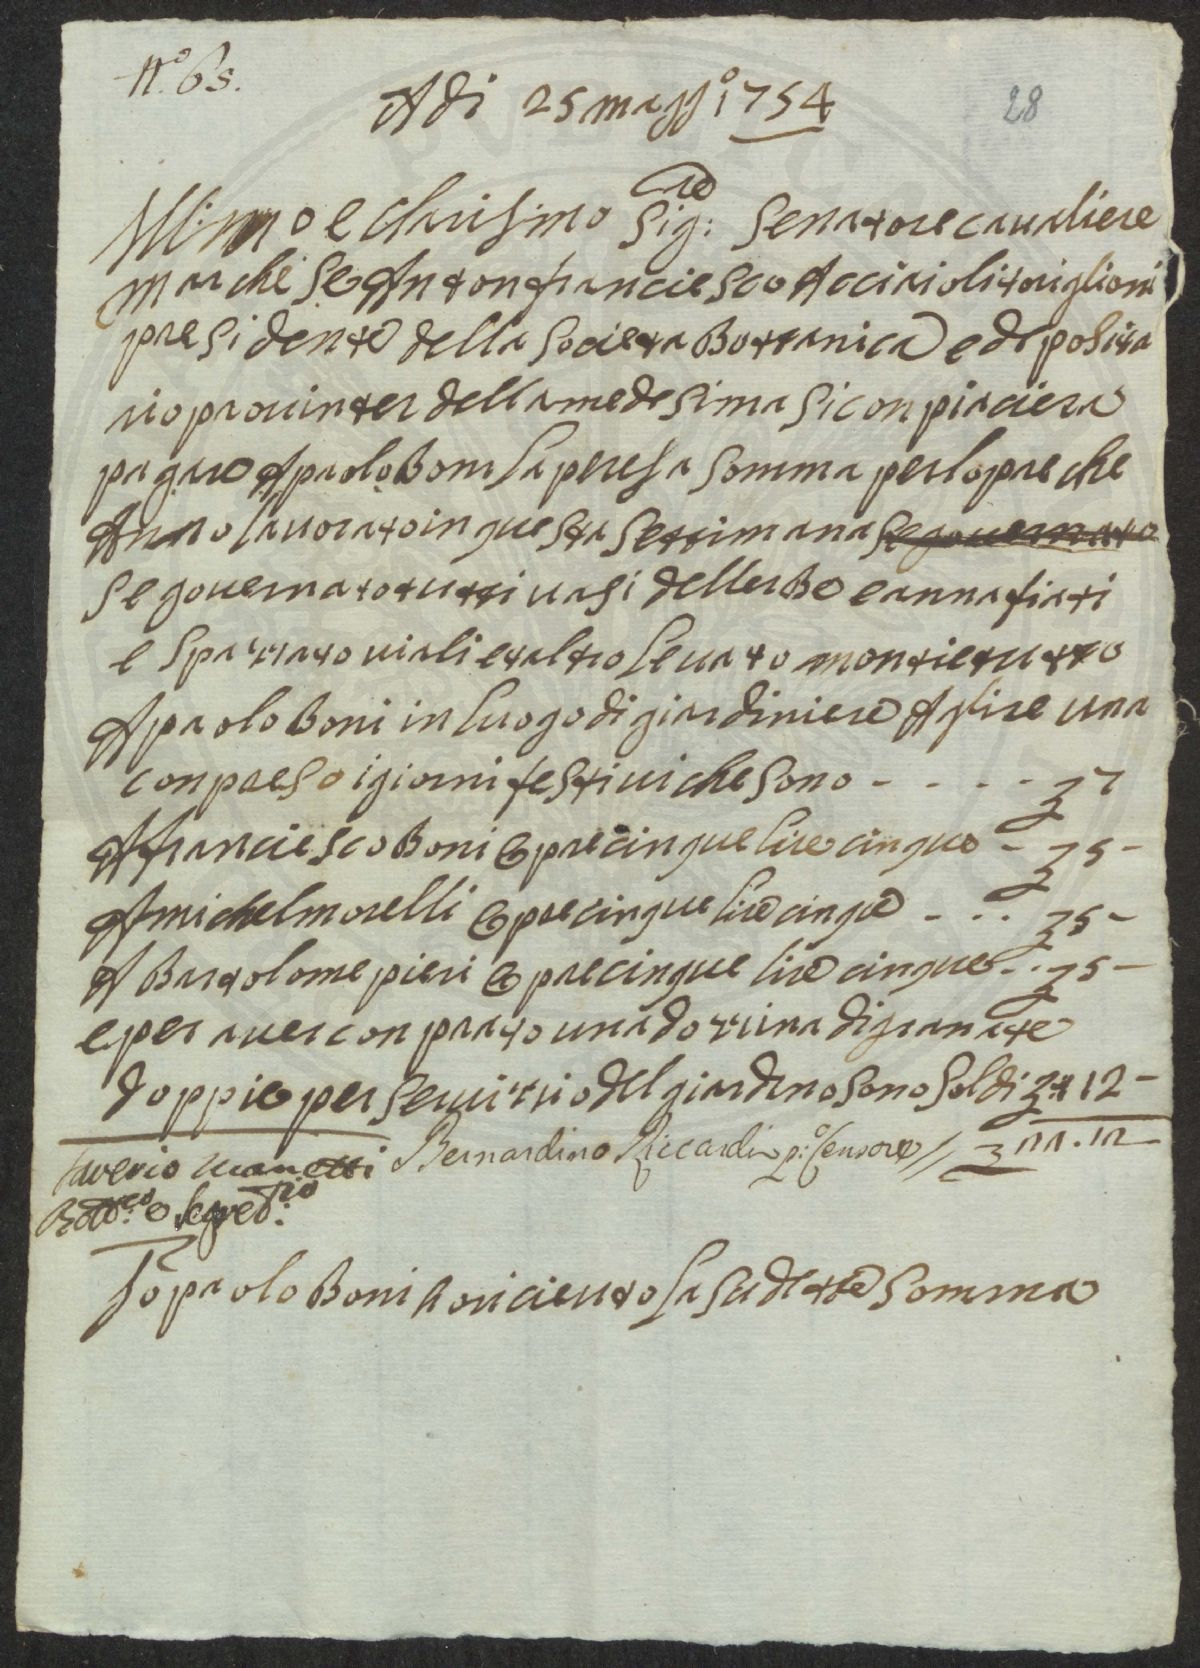 N.º 65.
28
Adi 25 magg.º 1754
Ill:mo e clarisimo Sig:re Senatore cavaliere
marchese Antonfranciesco Acciaioli toriglioni
presidente della societa Bottanica e deposita
rio prouinter della medesima si conpiaciera
pagare A paolo Boni la presa somma per lopre che
Anno lauorato in questa settimana se gouernato
se gouernato tutti uasi dellerbe e annafiati
e spazzato uiali et altro leuato monti e tutto
A paolo Boni in luogo di giardiniere A lire una
conpreso i giorni festiui che sono - - - - 7
A franciesco Boni opre cinque lire cinque - 5 -
A michel morelli opre cinque lire cinque - - - 5 -
A Bartolome pieri opre cinque lire cinque - - 5 -
e per auer conprato una dozzina di granate
doppie per seruizio del giardino sono soldi 12 -
Saverio Manetti Bernardino Riccardi p:º Censore // 22.12
Bott:co e Segret:rio
Io paolo Boni o riceuuto la sudette somma